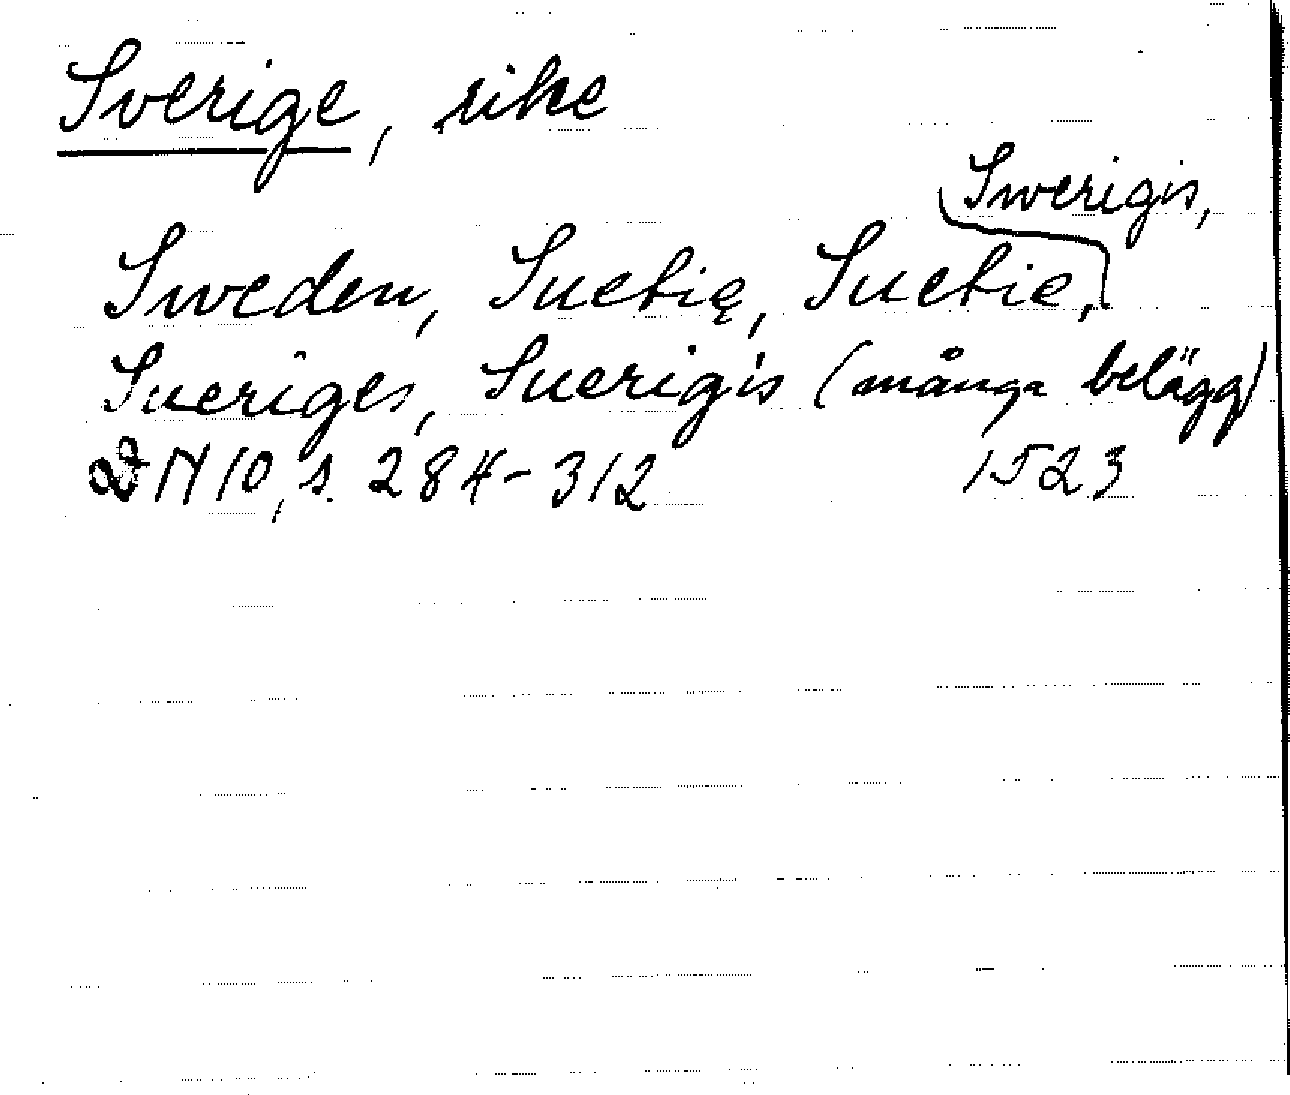 Sverige, rike
Swerigis,
Sweden, Suetię, Suetie,
Sueriges, Suerigis (många belägg)
N 10, s. 284-312 1523